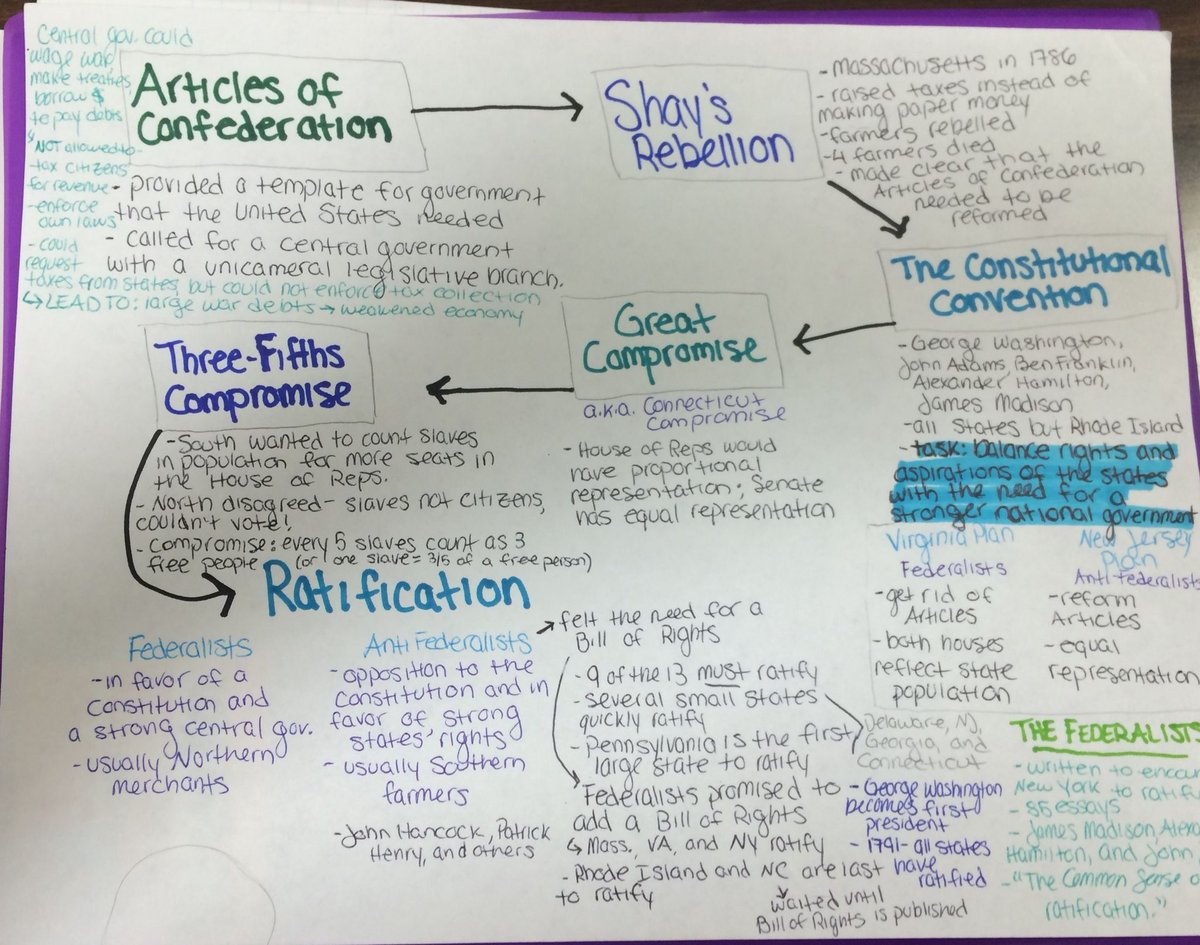 Central gov. could
wage war,
make treaties,
borrow $
to pay debts
*NOT allowed to-
tax citizens
for revenue
-enforce
own laws
- could
request
taxes from states, but could not enforce tax collection
↳ LEAD TO: large war debts → weakened economy
Articles of
Confederation
- provided a template for government
that the United States needed
- called for a central government
with a unicameral legislative branch.
Shay's
Rebellion
- Massachusetts in 1786
- raised taxes instead of
making paper money
-farmers rebelled
-4 farmers died
- made clear that the
Articles of Confederation
needed to be
reformed
The Constitutional
Convention
- George Washington,
John Adams, Ben Franklin,
Alexander Hamilton,
James Madison
-all states but Rhode Island
- task: balance rights and
aspirations of the states
with the need for a
stronger national government
Virginia Plan
Federalists
-get rid of
Articles
-both houses
reflect state
population
New Jersey
Plan
Anti federalists
-reform
Articles
-equal
representation
Great
Compromise
a.k.a. Connecticut
Compromise
- House of Reps would
have proportional
representation; Senate
has equal representation
Three-Fifths
Compromise
-South wanted to count slaves
in population for more seats in
the House of Reps.
- North disagreed- slaves not citizens,
couldn't vote!
- Compromise: every 5 slaves count as 3
free people (or one slave = 3/5 of a free person)
Ratification
Federalists
-in favor of a
Constitution and
a strong central gov.
-usually Northern
merchants
Anti Federalists
-opposition to the
Constitution and in
favor of strong
states' rights
- usually Southern
farmers
-John Hancock, Patrick
Henry, and others
→ felt the need for a
Bill of Rights
- 9 of the 13 must ratify
- several small states
quickly ratify
Delaware, NJ,
Georgia, and
Connecticut
- Pennsylvania is the first
large state to ratify
Federalists promised to
add a Bill of Rights
↳ Mass., VA, and NY ratify
- Rhode Island and NC are last
to ratify
waited until
Bill of Rights is published
- George Washington
becomes first
president
- 1791- all states
have
ratified
THE FEDERALIST
- written to
New York to
- 85 essays
- James Madison,
Hamilton, and John
-"The Common Sense
ratification."